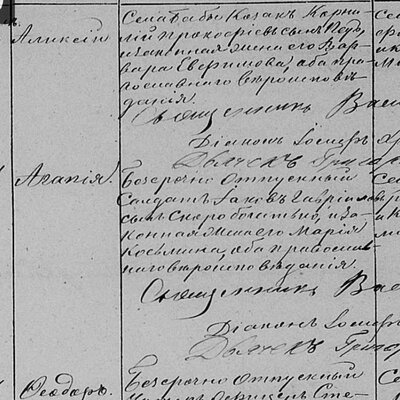 Алексій
Села Бабы Козакъ Корни-
лій Прокофіевъ сынъ
и законная жена его Вар-
вара Ефимова, оба пра-
вославнаго вѣроисповѣ-
данія.
Священникъ Васи
Діаконъ Іосифъ
Дьячекъ Григо
Агапія.
Безсрочно Отпускный
Солдатъ Іаковъ Гавріиловъ
сынъ Скоробогатько, и за-
конная жена его Марія
Козьмина, оба православ-
наго вѣроисповѣданія.
Священникъ Вас
Діаконъ Іосифъ
Дьячекъ Григо
Ѳеодоръ.
Безсрочно Отпускный
Офицеръ Сте-